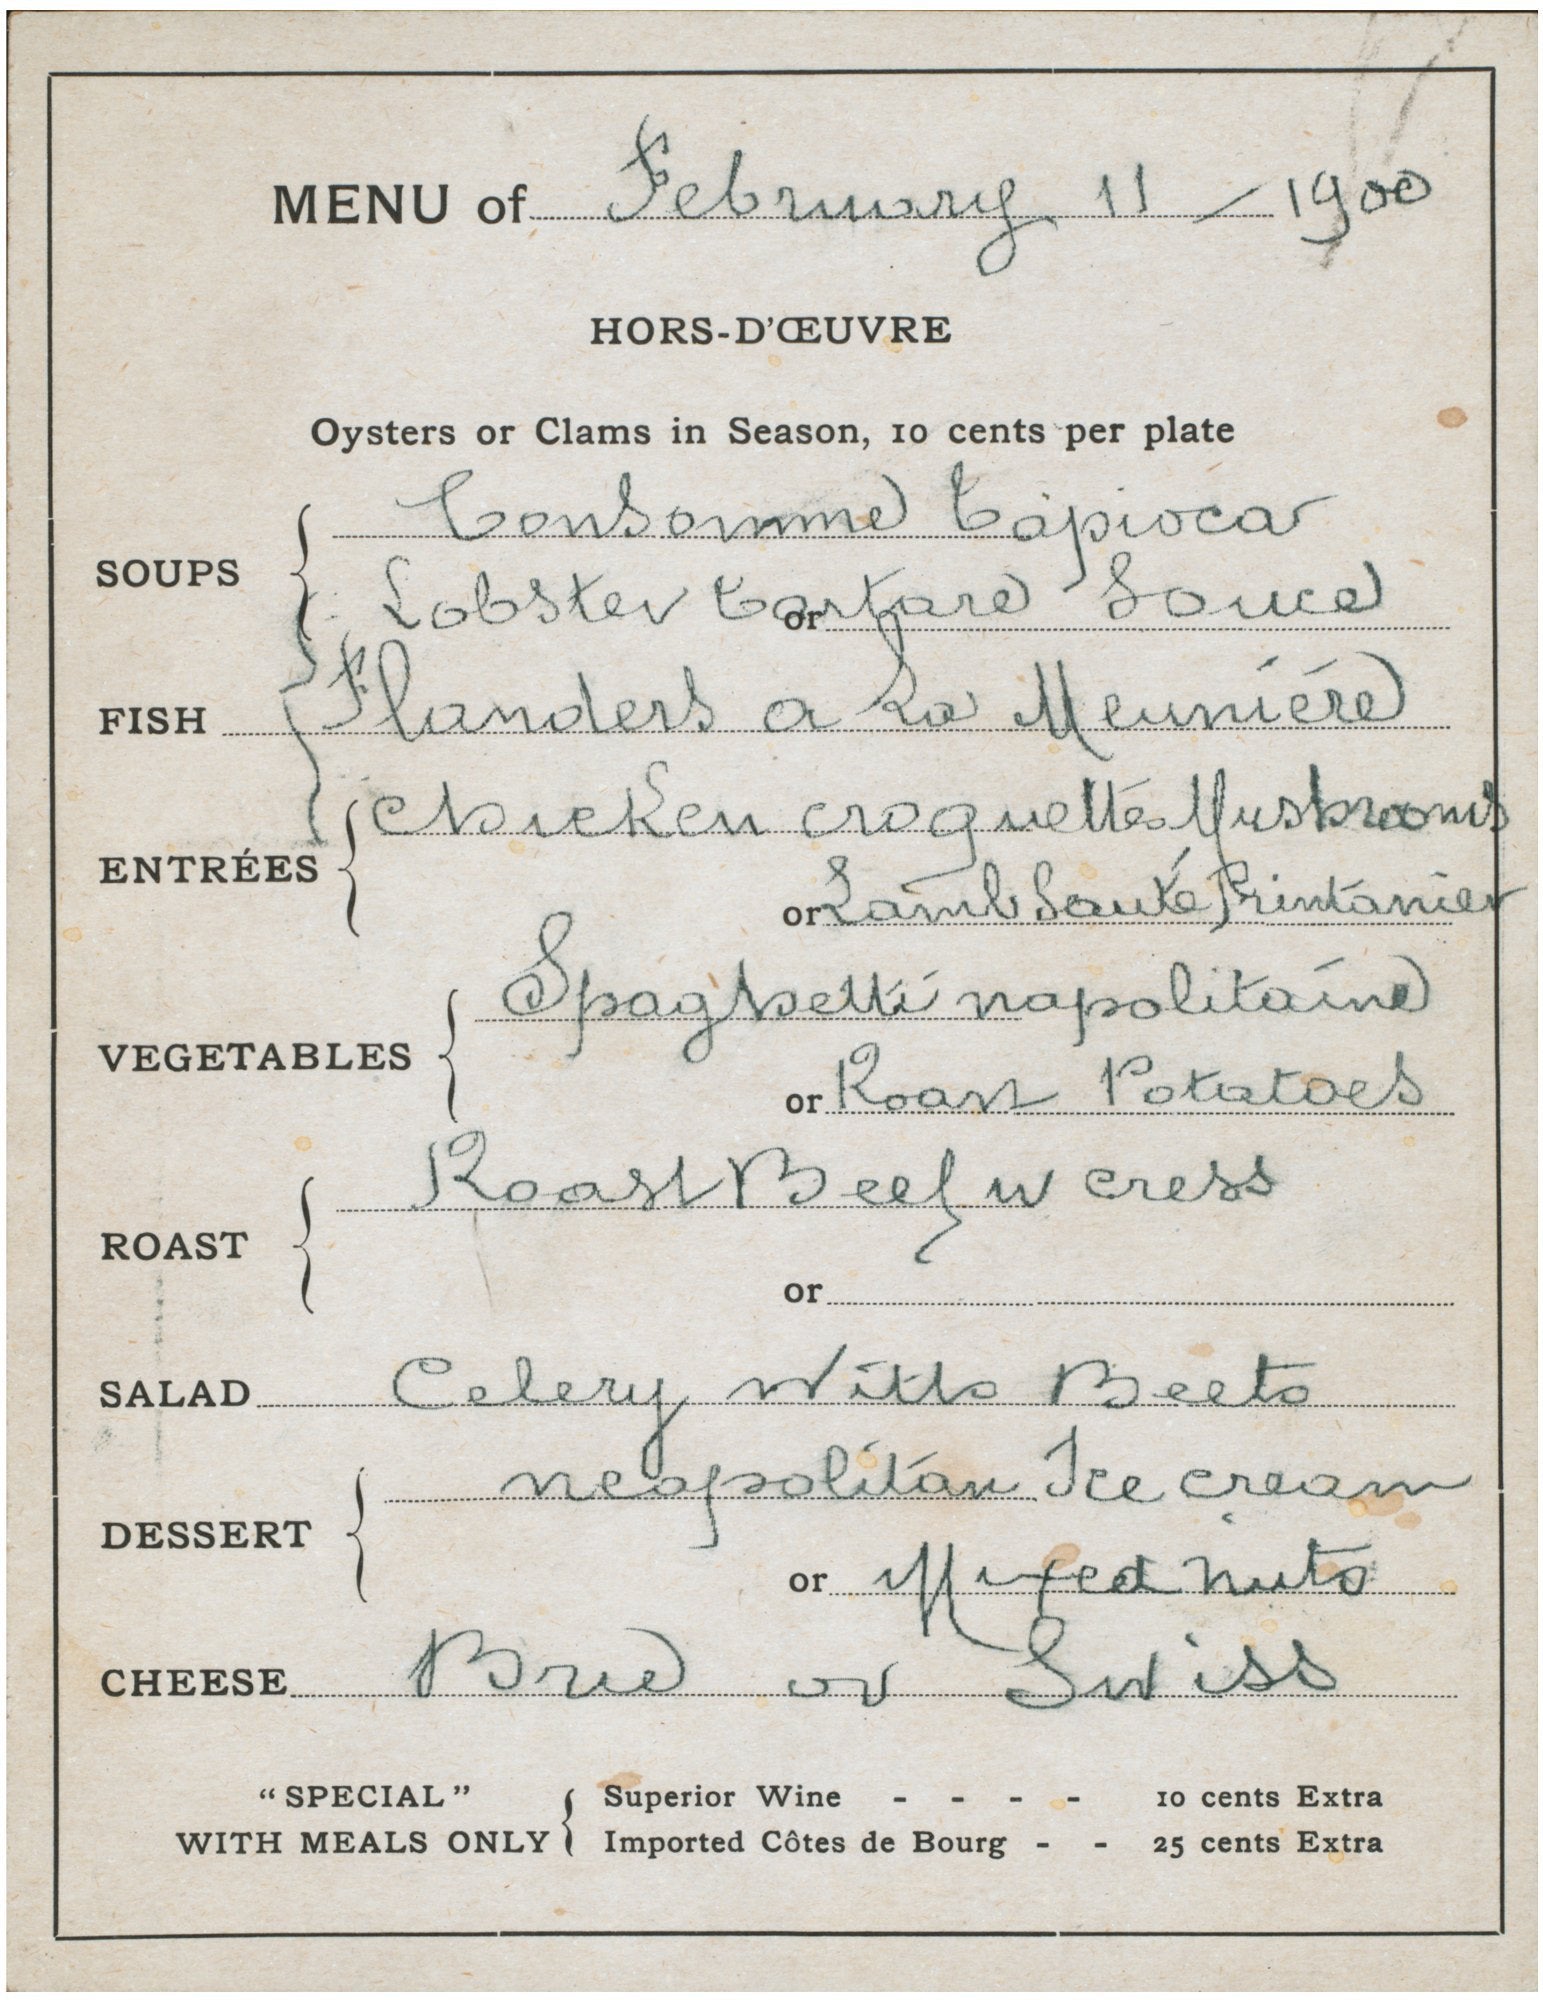 MENU of February 11 — 1900
HORS-D'ŒUVRE
Oysters or Clams in Season, 10 cents per plate
Consomme Tapioca
SOUPS
Lobster Tartare Sauce
or
FISH Flanders a La Meuniére
Chicken croquettes Mushrooms
ENTRÉES
or Lamb Sauté Printanier
Spaghetti napolitaine
VEGETABLES
or Roast Potatoes
Roast Beef w cress
ROAST
or
SALAD Celery With Beets
neapolitan Ice cream
DESSERT
or Mixed nuts
CHEESE Brie or Swiss
"SPECIAL" Superior Wine - - - - 10 cents Extra
WITH MEALS ONLY Imported Côtes de Bourg - - 25 cents Extra